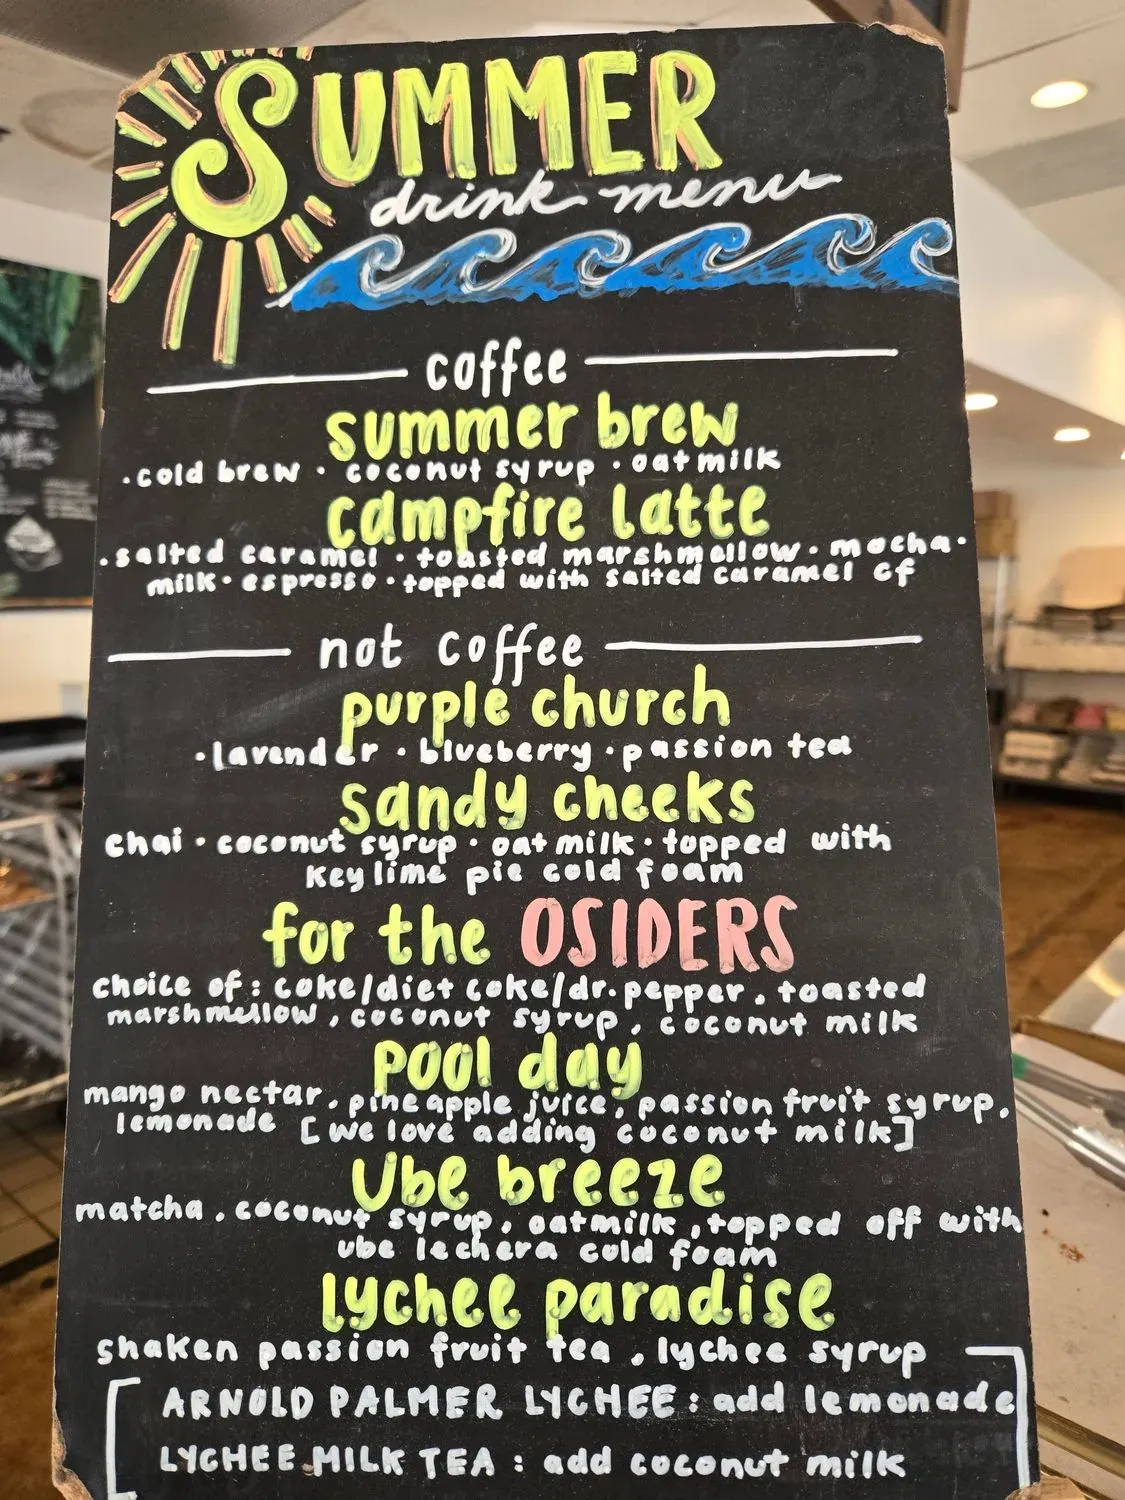 SUMMER
drink menu
coffee
summer brew
·cold brew · coconut syrup · oatmilk
campfire latte
·salted caramel · toasted marshmallow · mocha·
milk · espresso · topped with salted caramel cf
not coffee
purple church
·lavender · blueberry · passion tea
sandy cheeks
chai · coconut syrup · oat milk · topped with
key lime pie cold foam
for the OSIDERS
choice of: coke/diet coke/dr.pepper, toasted
marshmellow, coconut syrup, coconut milk
pool day
mango nectar, pineapple juice, passion fruit syrup,
lemonade [we love adding coconut milk]
Ube breeze
matcha, coconut syrup, oatmilk, topped off with
ube lechera cold foam
lychee paradise
shaken passion fruit tea, lychee syrup
ARNOLD PALMER LYCHEE: add lemonade
LYCHEE MILK TEA: add coconut milk